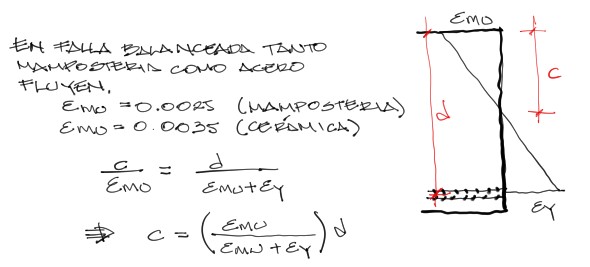 EN FALLA BALANCEADA TANTO
MAMPOSTERIA COMO ACERO
FLUYEN.
εmu = 0.0025 (MAMPOSTERIA)
εmu = 0.0035 (CERÁMICA)
c/εmu = d/(εmu+εy)
⇒ c = (εmu/(εmu + εy)) d
εmu
c
d
εy